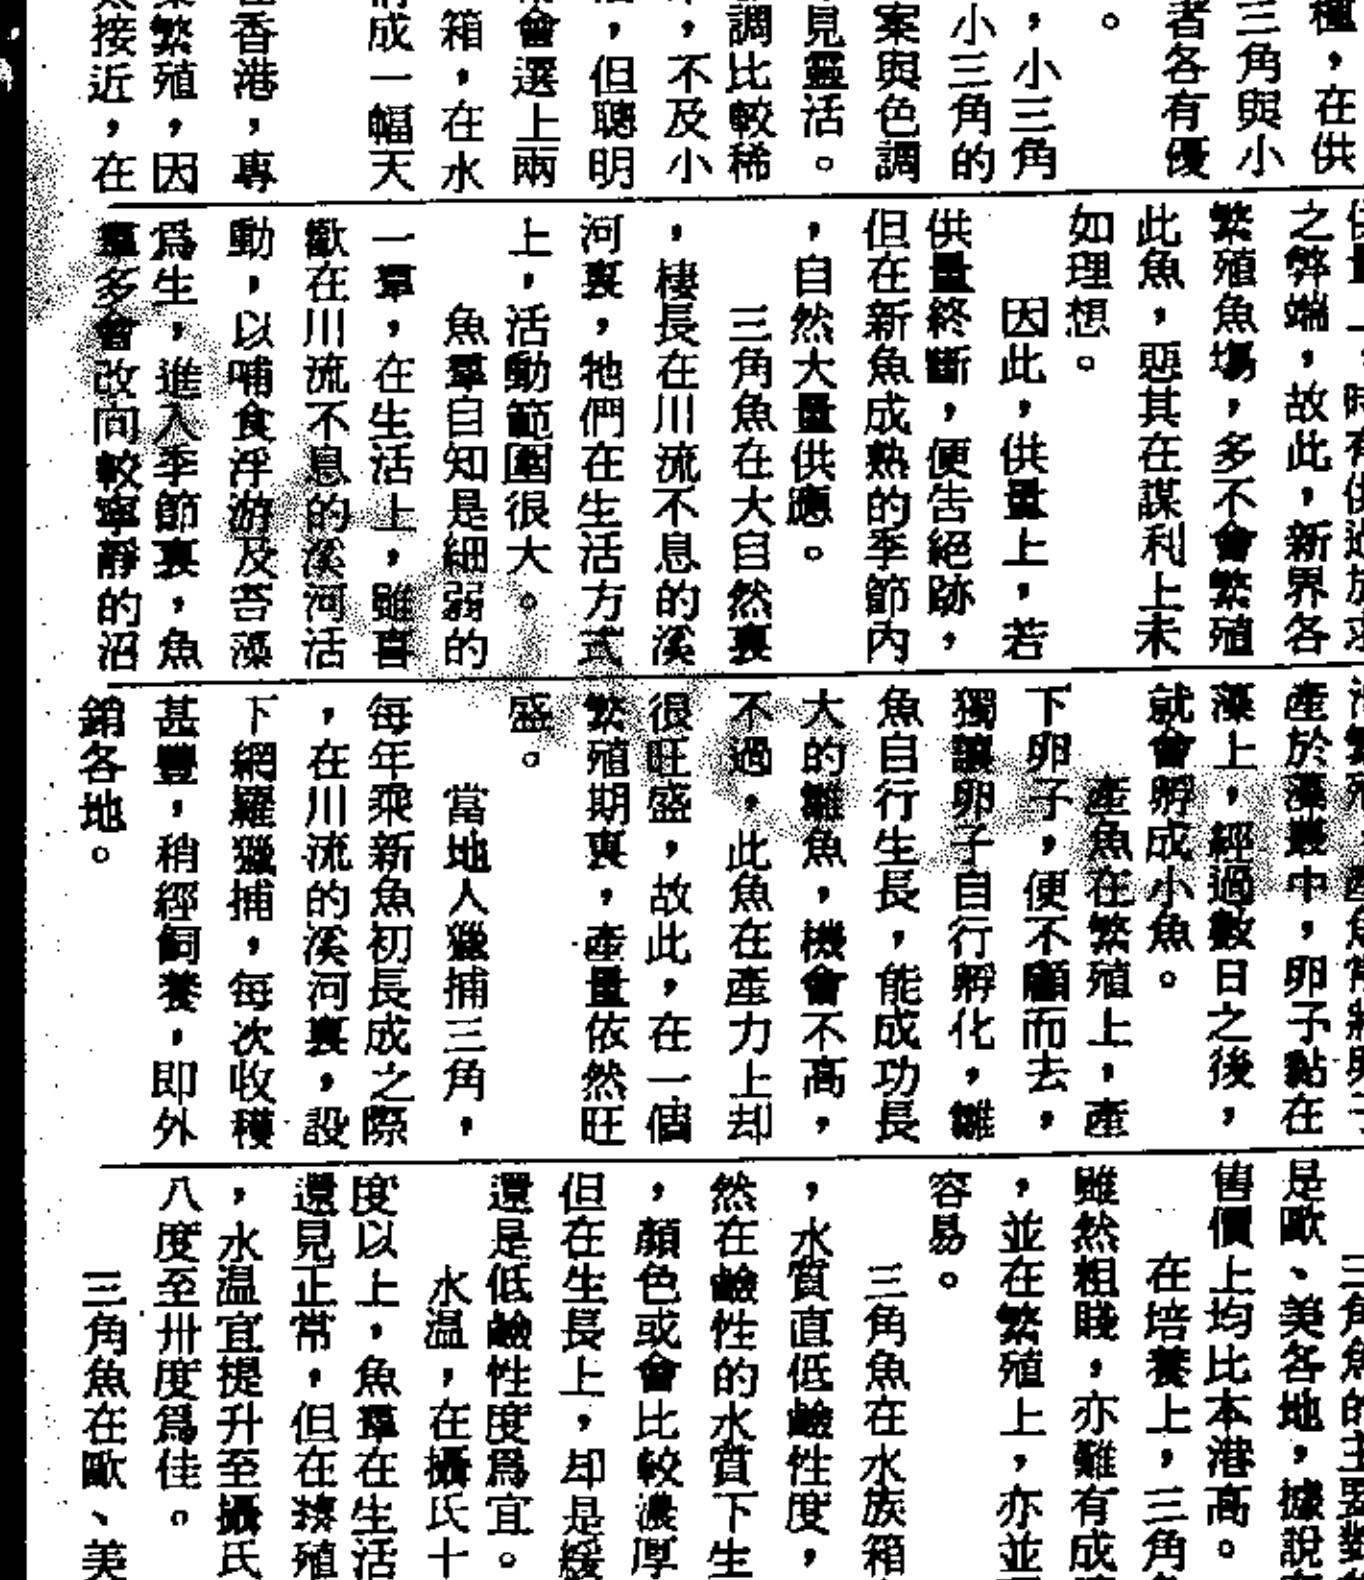 ，在供
三角與小
者各有優
。
，小三角
小三角的
案與色調
見靈活。
調比較稀
，不及小
，但聰明
會選上兩
箱，在水
成一幅天
香港，專
繁殖，因
接近，在
量上，時有供過於求
之弊端，故此，新界各
繁殖魚塲，多不會繁殖
此魚，惡其在謀利上未
如理想。
因此，供量上，若
供量終斷，便告絕跡，
但在新魚成熟的季節內
，自然大量供應。
三角魚在大自然裏
，棲長在川流不息的溪
河裏，牠們在生活方式
上，活動範圍很大。
魚羣自知是細弱的
一羣，在生活上，雖喜
歡在川流不息的溪河活
動，以哺食浮游及苔藻
爲生，進入季節裏，魚
羣多會改向較寧靜的沼
繁殖，產魚常將卵子
產於藻叢中，卵子黏在
藻上，經過數日之後，
就會孵成小魚。
產魚在繁殖上，產
下卵子，便不顧而去，
獨讓卵子自行孵化，雛
魚自行生長，能成功長
大的雛魚，機會不高，
不過，此魚在產力上却
很旺盛，故此，在一個
繁殖期裏，產量依然旺
盛。
當地人獵捕三角，
每年乘新魚初長成之際
，在川流的溪河裏，設
下網羅獵捕，每次收穫
甚豐，稍經飼養，即外
銷各地。
三角魚的主要
是歐、美各地，據說
售價上均比本港高。
在培養上，三角
雖然粗賤，亦難有成
，並在繁殖上，亦並
容易。
三角魚在水族箱
，水質直低鹼性度，
然在鹼性的水質下生
，顏色或會比較濃厚
但在生長上，却是緩
還是低鹼性度爲宜。
水温，在攝氏十
度以上，魚羣在生活
還見正常，但在繁殖
，水温宜提升至攝氏
八度至卅度爲佳。
三角魚在歐、美